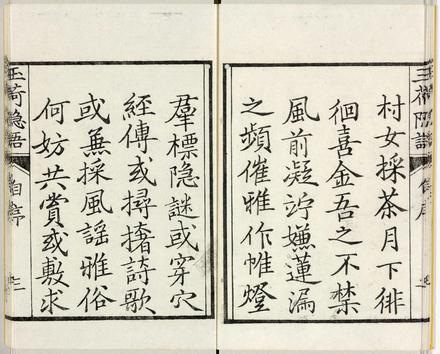 村女採茶月下徘
徊喜金吾之不禁
風前凝竚嫌蓮漏
之頻催雅作帷燈
羣標隐謎或穿穴
經傳或撏撦詩歌
或兼採風謡雅俗
何妨共賞或敷求
玉荷隐語
自序
三